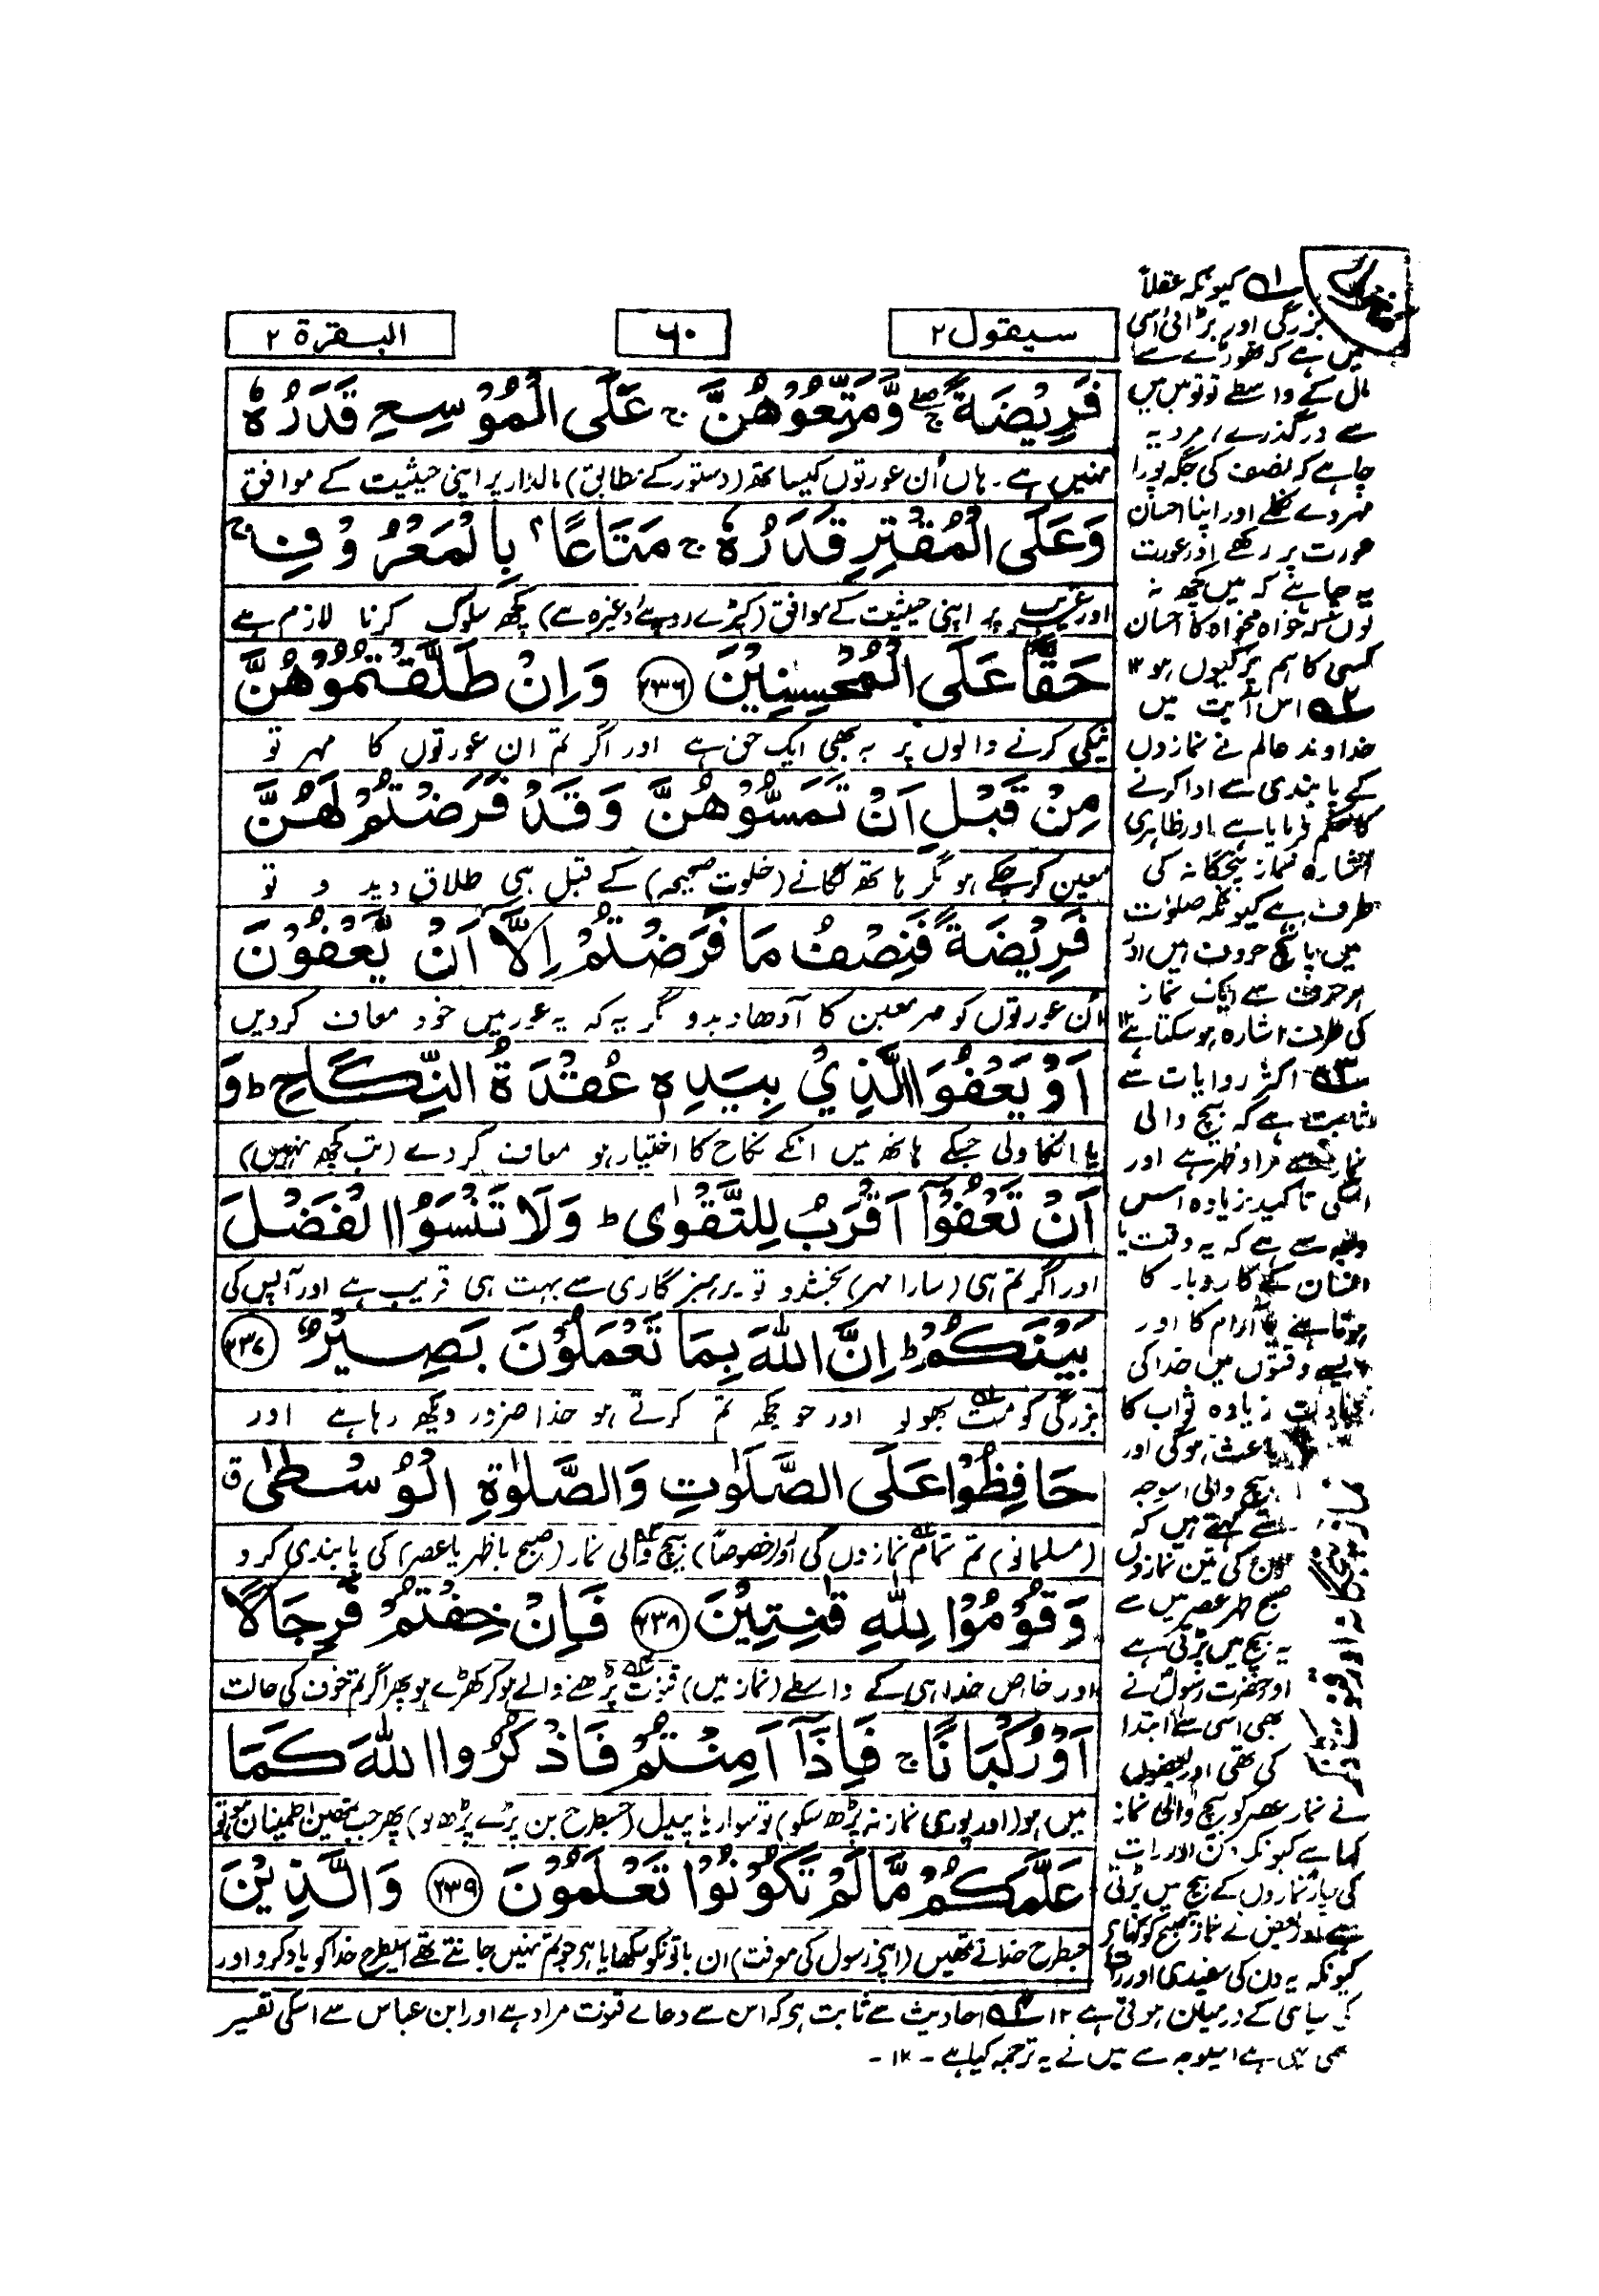 سيقول ٢
٦٠
البقرة ٢
فَرِيْضَةً ۚۖ وَّمَتِّعُوْهُنَّ ۚ عَلَى الْمُوْسِعِ قَدَرُهٗ
نہیں ہے۔ ہاں اُن عورتوں کیساتھ (دستور کے مطابق) مالدار پر اپنی حیثیت کے موافق
وَعَلَى الْمُقْتِرِ قَدَرُهٗ ۚ مَتَاعًا ۢ بِالْمَعْرُوْفِ ۚ
اور غریب پر اپنی حیثیت کے موافق (کپڑے روپے وغیرہ سے) کچھ سلوک کرنا لازم ہے
حَقًّا عَلَى الْمُحْسِنِيْنَ ﴿٢٣٦﴾ وَاِنْ طَلَّقْتُمُوْهُنَّ
نیکی کرنے والوں پر یہ بھی ایک حق ہے اور اگر تم ان عورتوں کا مہر تو
مِنْ قَبْلِ اَنْ تَمَسُّوْهُنَّ وَقَدْ فَرَضْتُمْ لَهُنَّ
معین کر چکے ہو مگر ہاتھ لگانے (خلوت صحیحہ) کے قبل ہی طلاق دید و تو
فَرِيْضَةً فَنِصْفُ مَا فَرَضْتُمْ اِلَّاۤ اَنْ يَّعْفُوْنَ
اُن عورتوں کو مہر معین کا آدھا دیدو مگر یہ کہ یہ عورتیں خود معاف کردیں
اَوْ يَعْفُوَا الَّذِيْ بِيَدِهٖ عُقْدَةُ النِّكَاحِ ؕ وَ
یا انکا ولی جسکے ہاتھ میں انکے نکاح کا اختیار ہو معاف کردے (تب کچھ نہیں)
اَنْ تَعْفُوْۤا اَقْرَبُ لِلتَّقْوٰى ؕ وَلَا تَنْسَوُا الْفَضْلَ
اور اگر تم ہی (سارا مہر) بخشدو تو پرہیزگاری سے بہت ہی قریب ہے اور آپس کی
بَيْنَكُمْ ؕ اِنَّ اللّٰهَ بِمَا تَعْمَلُوْنَ بَصِيْرٌ ﴿٢٣٧﴾
بزرگی کو مت بھولو اور جو کچھ تم کرتے ہو خدا ضرور دیکھ رہا ہے اور
حَافِظُوْا عَلَى الصَّلَوٰتِ وَالصَّلٰوةِ الْوُسْطٰى ق
(مسلمانو) تم تمام نمازوں کی اور خصوصاً) بیچ والی نماز (صبح یا ظہر یا عصر) کی پابندی کرو
وَقُوْمُوْا لِلّٰهِ قٰنِتِيْنَ ﴿٢٣٨﴾ فَاِنْ خِفْتُمْ فَرِجَالًا
اور خاص خدا ہی کے واسطے (نماز میں) قنوت پڑھنے والے ہو کر کھڑے ہو پھر اگر تم خوف کی حالت
اَوْ رُكْبَانًا ۚ فَاِذَاۤ اَمِنْتُمْ فَاذْكُرُوا اللّٰهَ كَمَا
میں ہو (اور پوری نماز نہ پڑھ سکو) تو سوار یا پیدل (جسطرح بن پڑے پڑھ لو) پھر جب تمھیں اطمینان ہو تو
عَلَّمَكُمْ مَّا لَمْ تَكُوْنُوْا تَعْلَمُوْنَ ﴿٢٣٩﴾ وَالَّذِيْنَ
جسطرح خدا نے تمھیں (اپنے رسول کی معرفت) ان باتونکو سکھایا ہی جو تم نہیں جانتے تھے اسیطرح خدا کو یاد کرو اور
۱ کیونکہ عقلاً
بزرگی اور بڑائی اُسی
میں ہے کہ تھوڑے سے
مال کے واسطے تو تو میں میں
سے درگذرے، مرد یہ
چاہے کہ نصف کی جگہ پورا
مہر دے نکلے اور اپنا احسان
عورت پر رکھے اور عورت
یہ چاہے کہ میں کچھ نہ
لوں خواہ مخواہ کا احسان
کسی کا ہم پر کیوں ہو ۱۲
۲ اس آیت میں
خداوند عالم نے نمازوں
کے پابندی سے ادا کرنے
کا حکم فرمایا ہے اور ظاہری
اشارہ نماز پنجگانہ کی
طرف ہے کیونکہ صلوٰت
میں پانچ حروف ہیں اور
ہر حرف سے ایک نماز
کی طرف اشارہ ہو سکتا ہے ۱۲
۳ اکثر روایات سے
ثابت ہے کہ بیچ والی
نماز سے مراد ظہر ہے اور
اسکی تاکید زیادہ اس
وجہ سے ہے کہ یہ وقت یا
انسان کے کاروبار کا
ہوتا ہے یا آرام کا اور
ایسے وقتوں میں خدا کی
عبادت زیادہ ثواب کا
باعث ہوگی اور
بیچ والی اسوجہ
سے کہتے ہیں کہ
دن کی تین نمازوں
صبح ظہر عصر میں سے
یہ بیچ میں پڑتی ہے
اور حضرت رسول نے
بھی اسی سے ابتدا
کی تھی اور بعضوں
نے نماز عصر کو بیچ والی نماز
کہا ہے کیونکہ دن اور رات
کی چار نمازوں کے بیچ میں پڑتی
ہے اور بعض نے نماز صبح کو کہا ہے
کیونکہ یہ دن کی سفیدی اور رات
کی سیاہی کے درمیان ہوتی ہے ۱۲ ۴ احادیث سے ثابت ہی کہ اس سے دعائے قنوت مراد ہے اور ابن عباس سے اسکی تفسیر
بھی یہی ہے اسیلوجہ سے میں نے یہ ترجمہ کیا ہے ۔ ۱۲ ۔